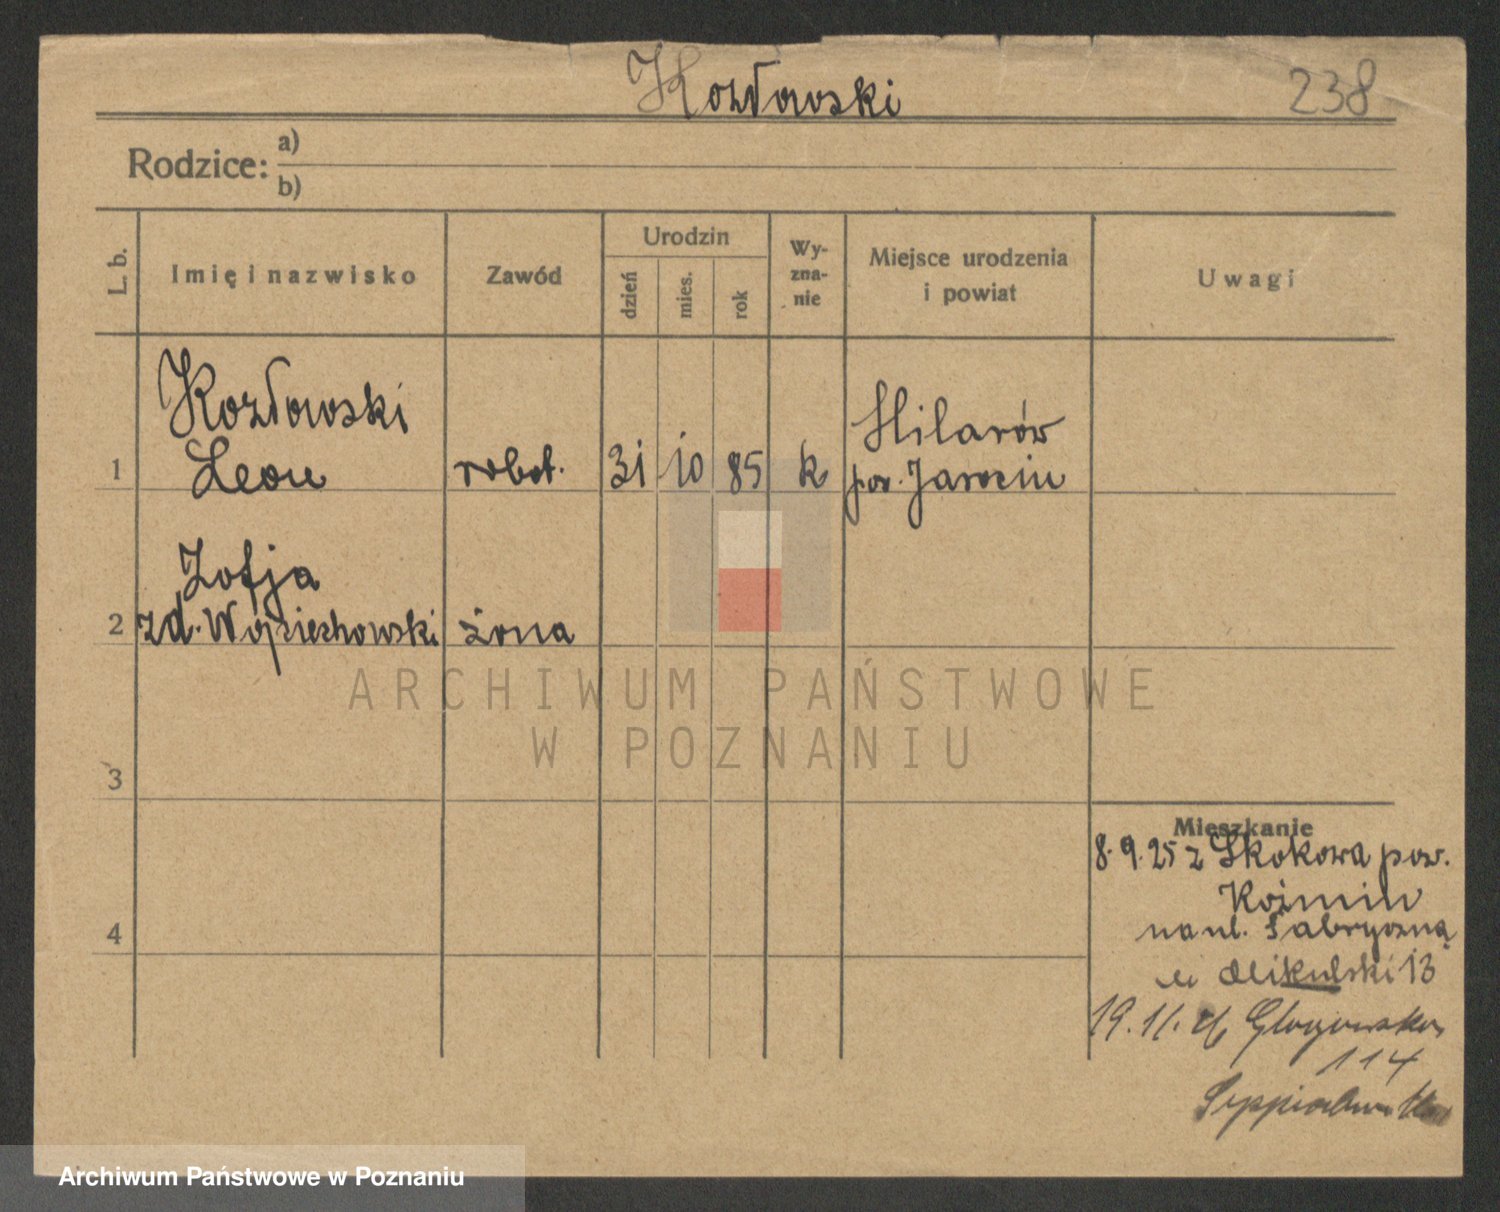 Kozłowski
238
Rodzice:
a)
b)
L. b.
Imię i nazwisko
Zawód
Urodzin
dzień
mies.
rok
Wy-
zna-
nie
Miejsce urodzenia
i powiat
Uwagi
Kozłowski
1 Leon robot. 31 10 85 k
Hilarów
pow. Jarocin
Zofja
2 zd. Wojciechowski żona
3
4
Mieszkanie
8.9.25 z Skokowa pow.
Koźmin
na ul. Fabryczną
u Mikulski 13
19.11. Głogowska
114
ARCHIWUM PAŃSTWOWE
W POZNANIU
Archiwum Państwowe w Poznaniu